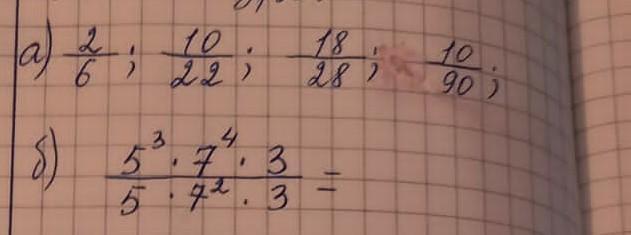 а) 2/6 ; 10/22 ; 18/28 ; 10/90 ;
б) 5³ · 7⁴ · 3 / 5 · 7² · 3 =